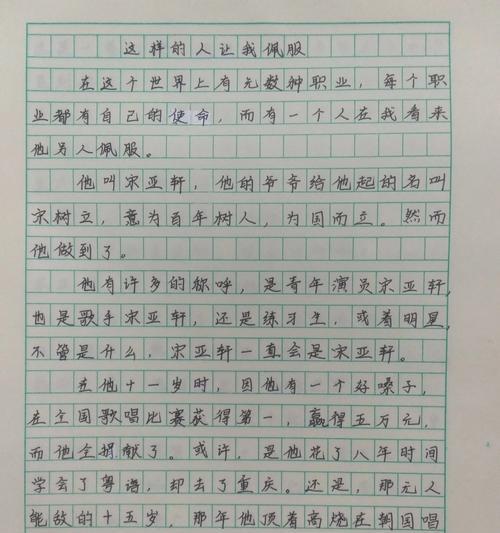 这样的人让我佩服
在这个世界上有无数种职业，每个职
业都有自己的使命，而有一个人在我看来
他另人佩服。
他叫宋亚轩，他的爷爷给他起的名叫
宋树立，意为百年树人，为国而立。然而
他做到了。
他有许多的称呼，是青年演员宋亚轩，
也是歌手宋亚轩，还是练习生，或着明星，
不管是什么，宋亚轩一直会是宋亚轩。
在他十一岁时，因他有一个好嗓子，
在全国歌唱比赛获得第一，赢得五万元，
而他全捐献了。或许，是他花了八年时间
学会了粤语，却去了重庆。还是，那无人
能敌的十五岁，那年他顶着高烧在朝国唱